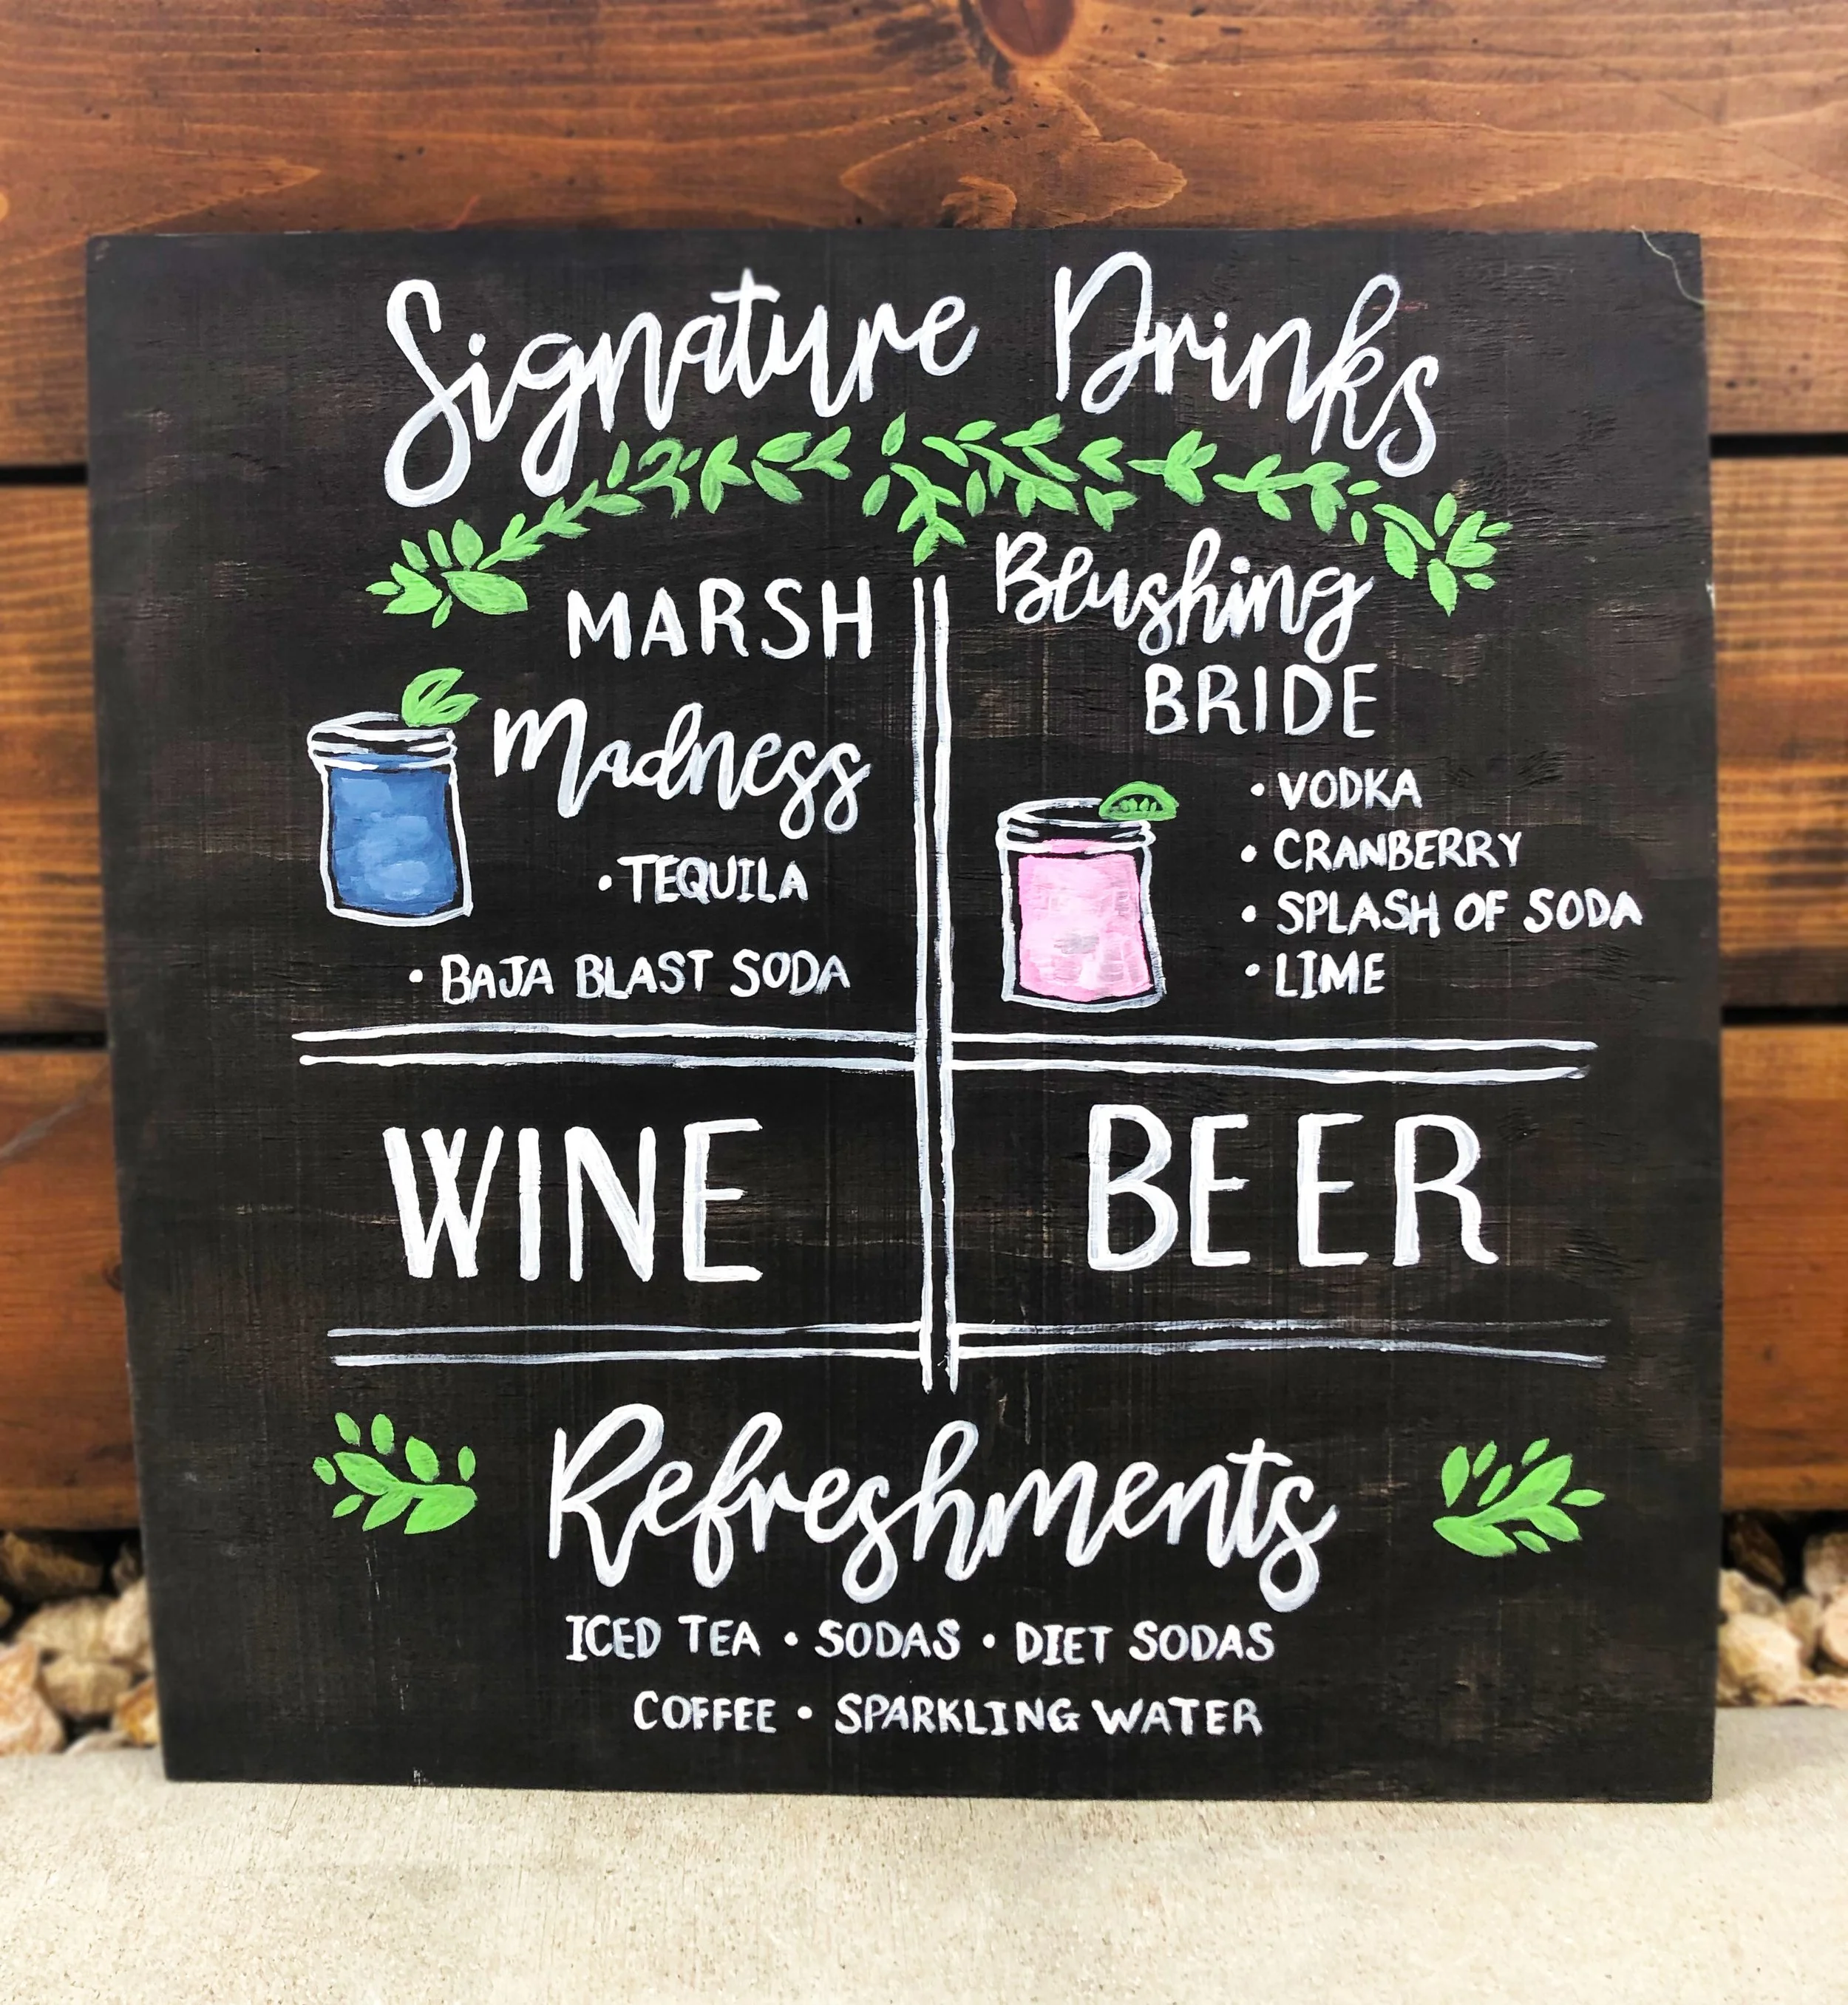 Signature Drinks
MARSH
Madness
• TEQUILA
• BAJA BLAST SODA
Blushing
BRIDE
• VODKA
• CRANBERRY
• SPLASH OF SODA
• LIME
WINE
BEER
Refreshments
ICED TEA • SODAS • DIET SODAS
COFFEE • SPARKLING WATER